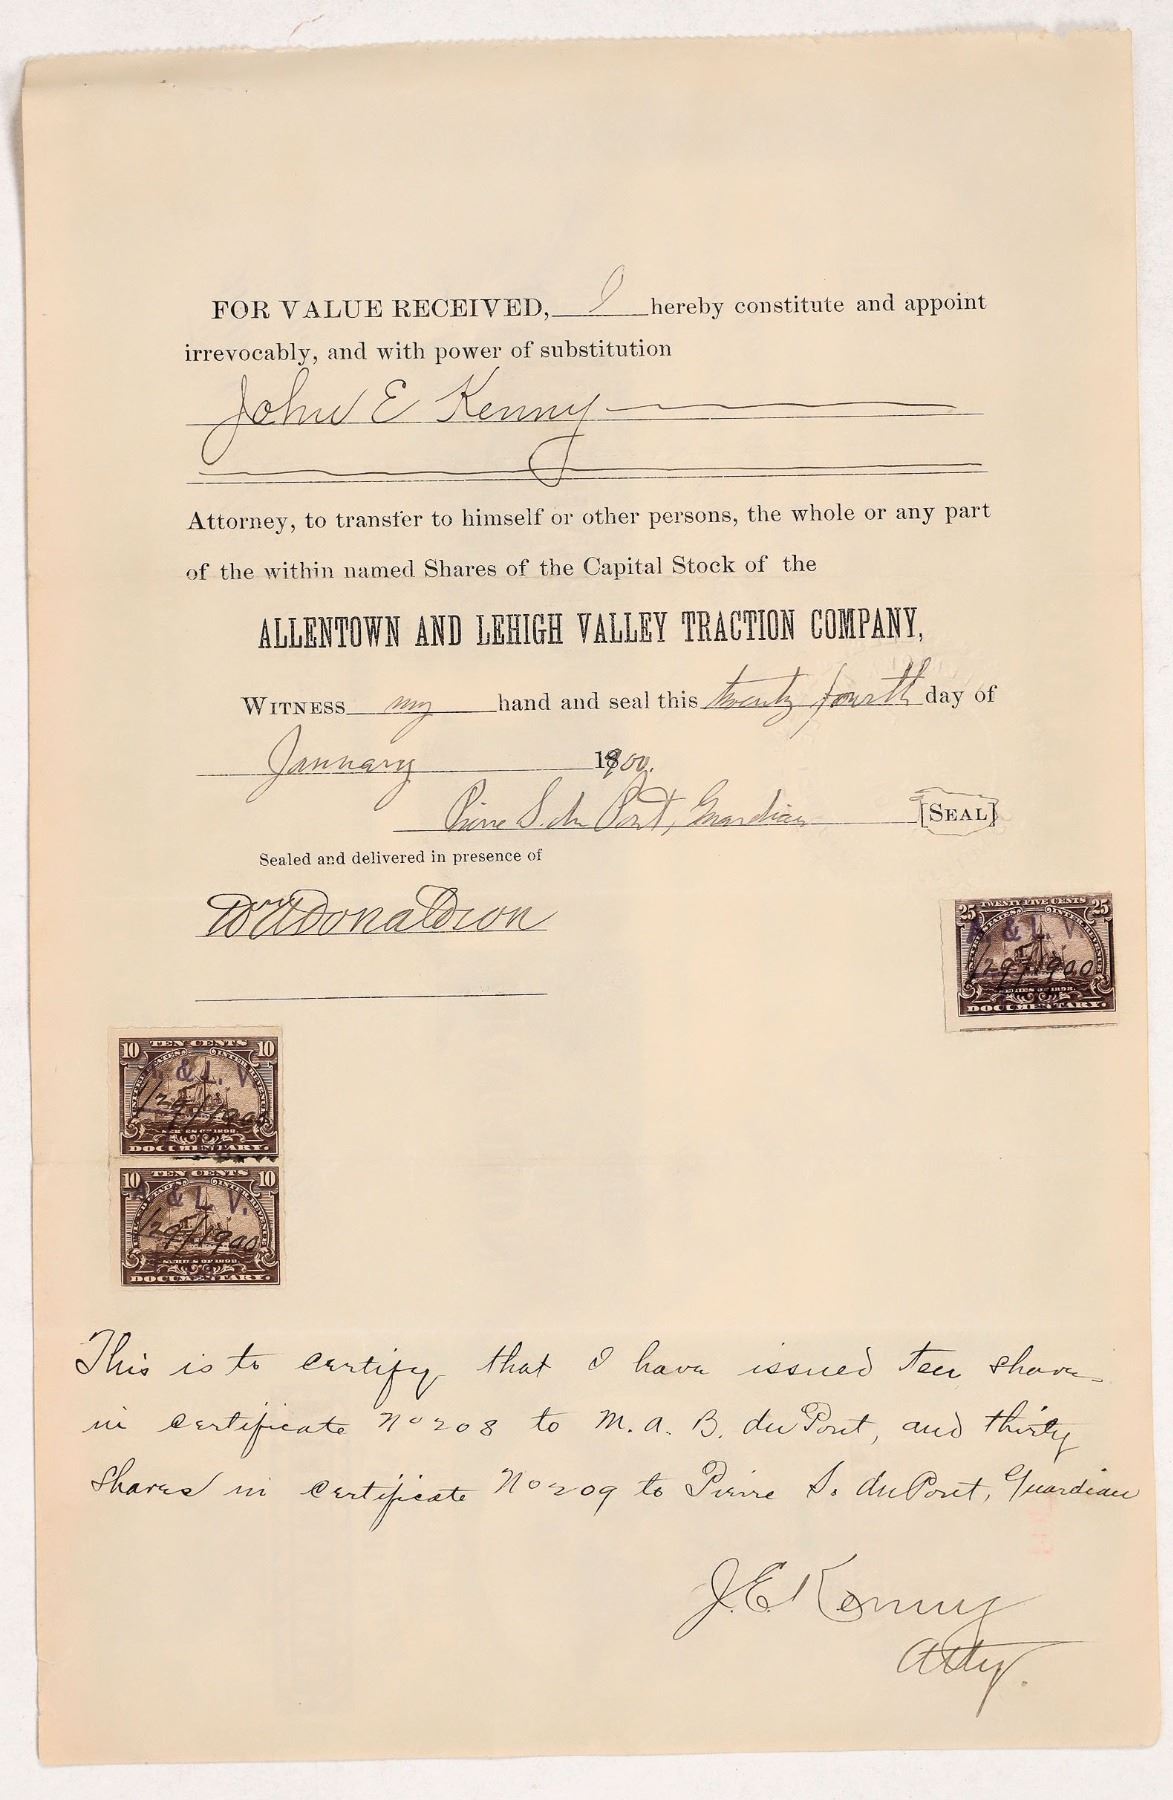 FOR VALUE RECEIVED, I hereby constitute and appoint
irrevocably, and with power of substitution
John E Kenny
Attorney, to transfer to himself or other persons, the whole or any part
of the within named Shares of the Capital Stock of the
ALLENTOWN AND LEHIGH VALLEY TRACTION COMPANY,
WITNESS my hand and seal this twenty fourth day of
January 1900.
Pierre S. du Pont, Guardian [SEAL]
Sealed and delivered in presence of
Wm A Donaldson
25 TWENTY FIVE CENTS 25
UNITED STATES INTER. REVENUE
A. & L. V.
1/29/1900
SERIES OF 1898.
DOCUMENTARY.
10 TEN CENTS 10
UNITED STATES INTER. REVENUE
& L. V.
1/29/1900
SERIES OF 1898.
DOCUMENTARY.
10 TEN CENTS 10
UNITED STATES INTER. REVENUE
A. & L. V.
1/29/1900
SERIES OF 1898.
DOCUMENTARY.
This is to certify that I have issued ten shares
in certificate No 208 to M. A. B. du Pont, and thirty
shares in certificate No 209 to Pierre S. du Pont, Guardian
J. E. Kenny
Atty.